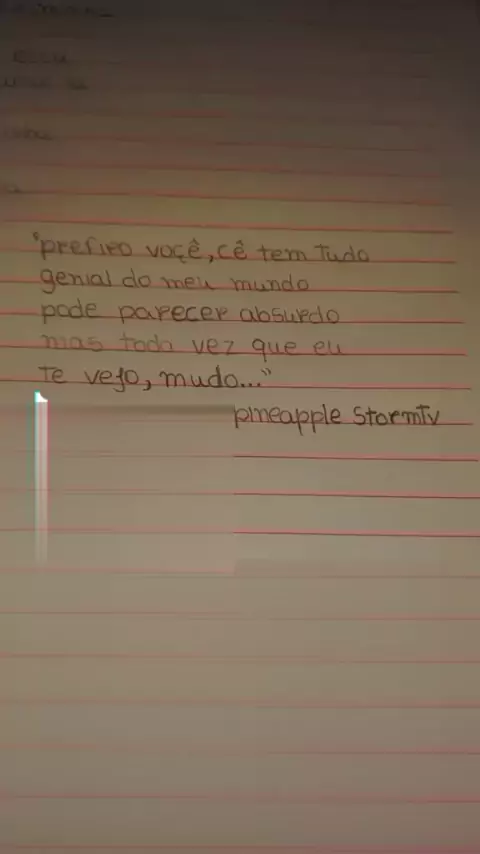 "prefiro voçê, cê tem Tudo
genial do meu mundo
pode parecer absurdo
mas toda vez que eu
Te vejo, mudo..."
pineapple StormTv